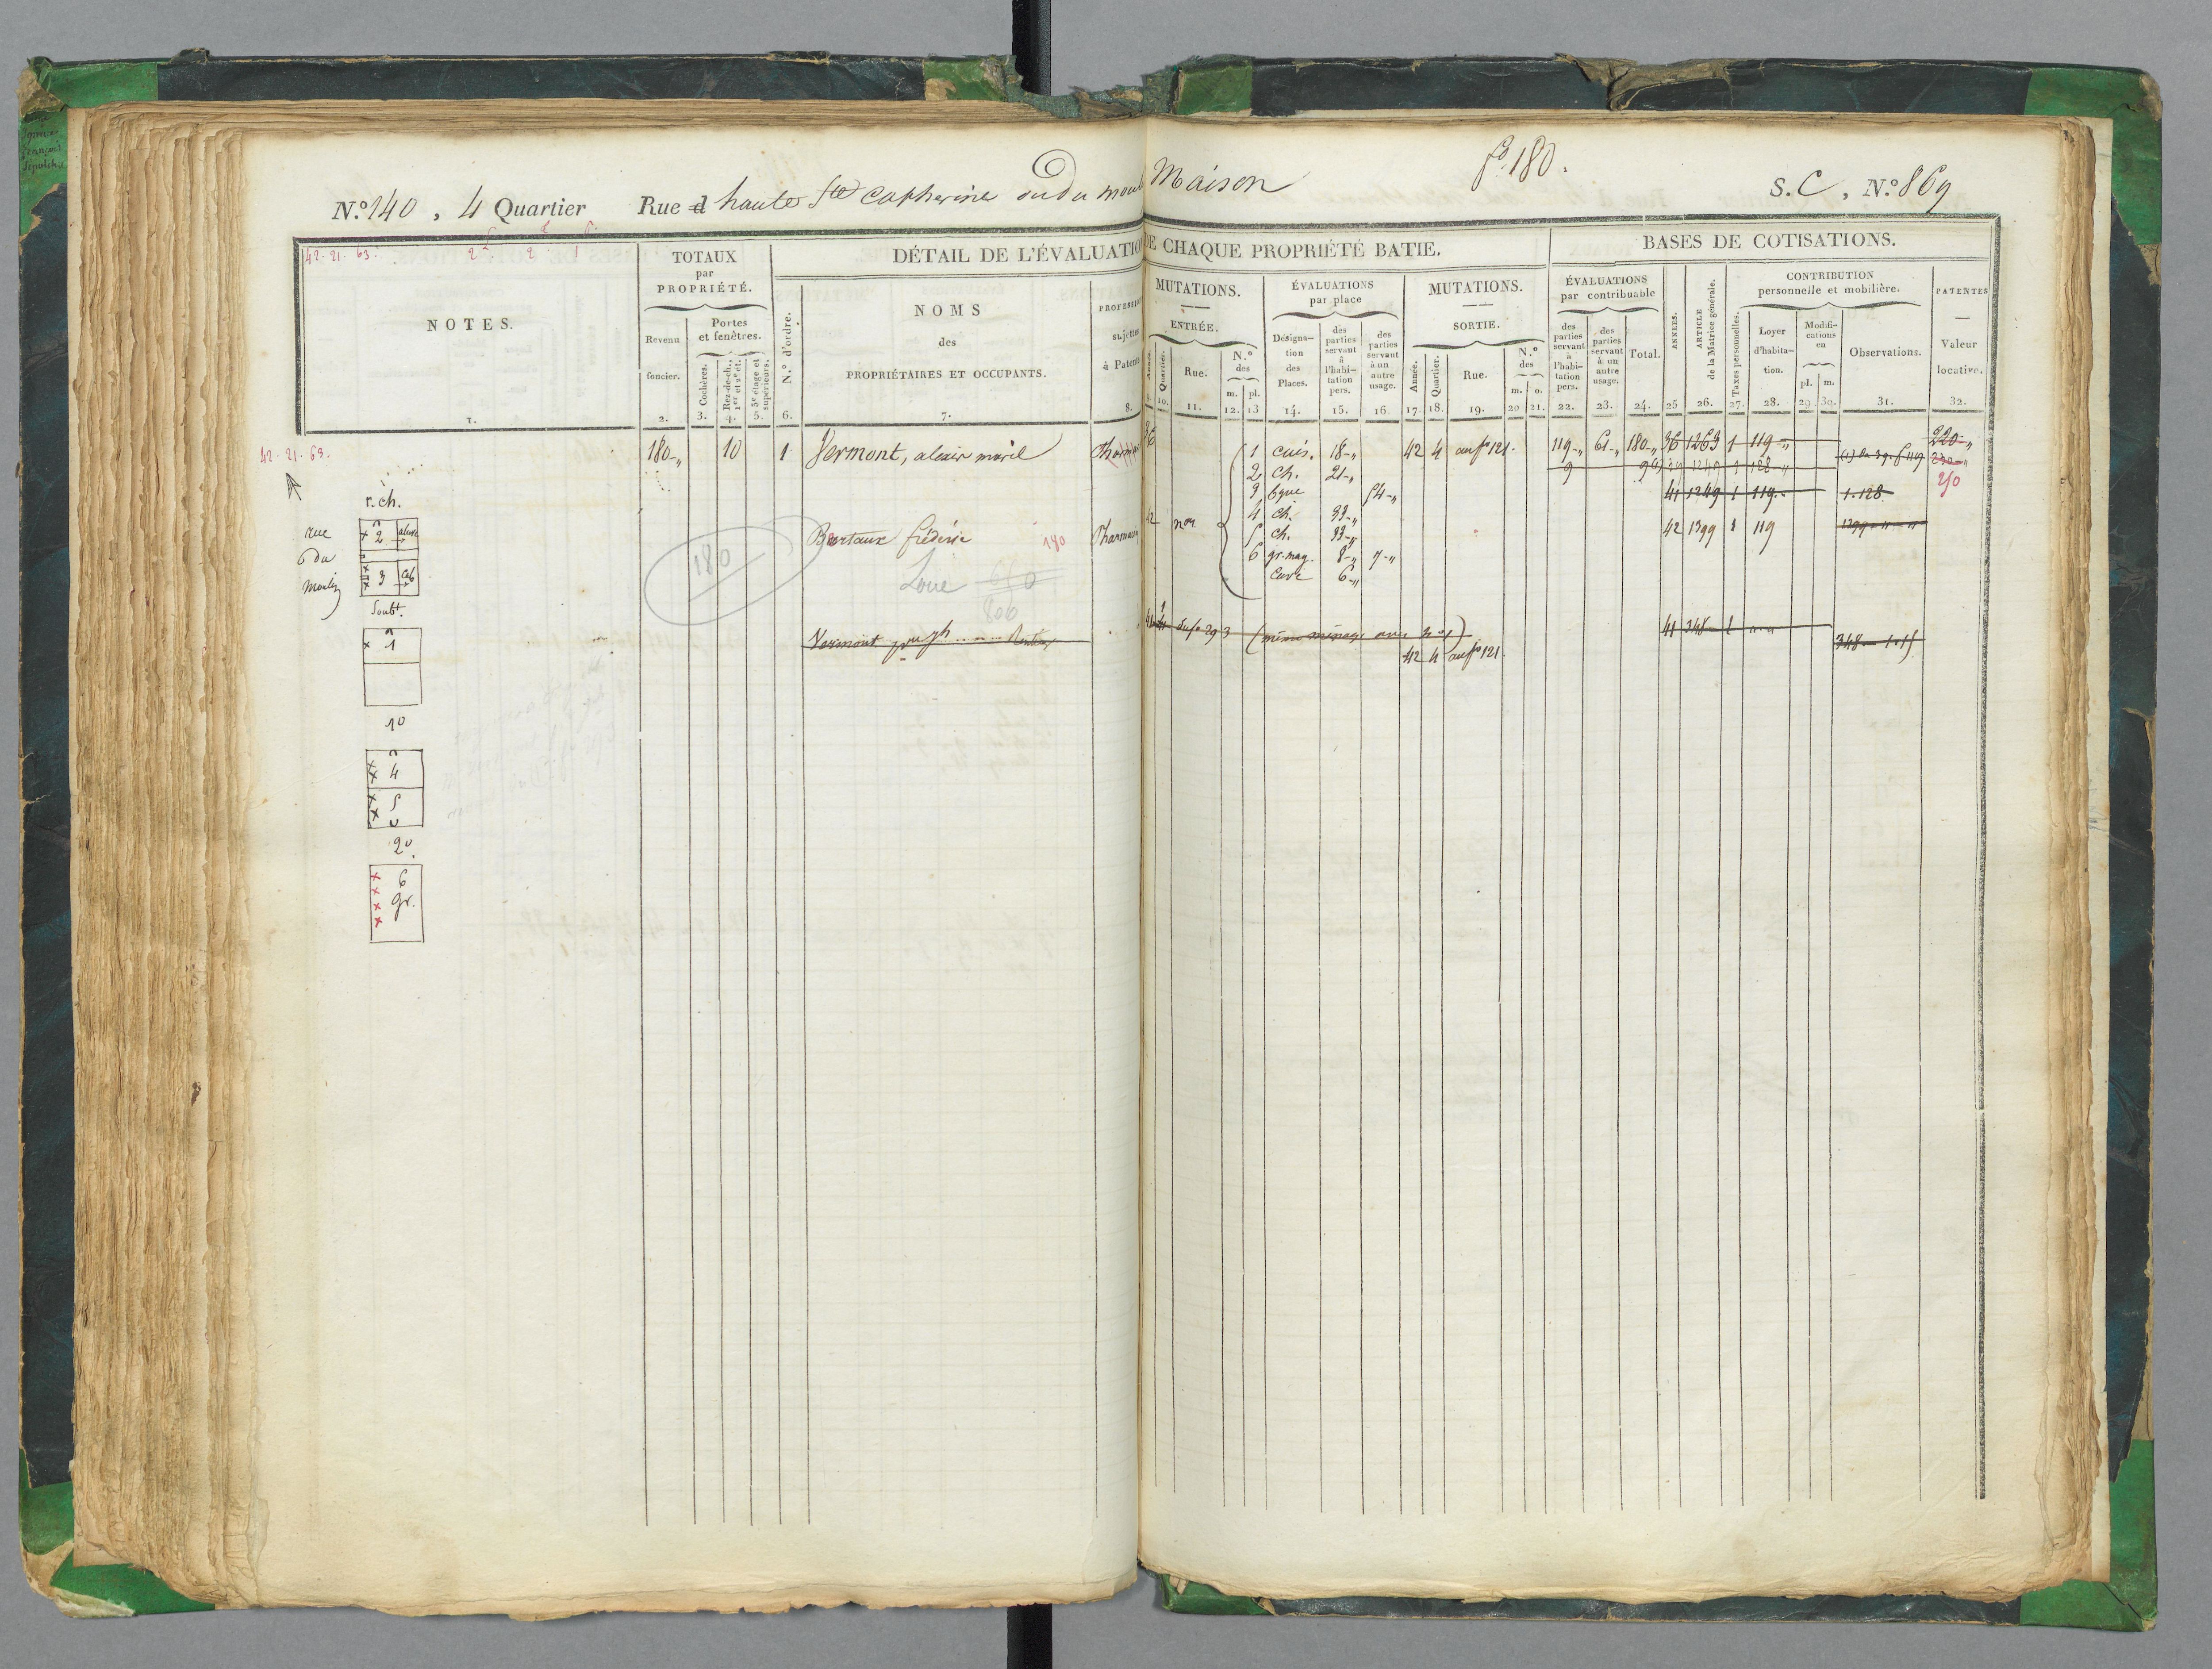 Maison
fo 180.
N.º 140, 4 Quartier Rue d haute Ste Catherine ou du moul
S. C, N.º 869
42. 21. 63.
TOTAUX
par
PROPRIÉTÉ.
DÉTAIL DE L'ÉVALUATION DE CHAQUE PROPRIÉTÉ BATIE.
BASES DE COTISATIONS.
NOTES.
Revenu
foncier.
Portes
et fenêtres.
Cochères.
Rez-de-ch.,
1er et 2e ét.
3e étage et
supérieurs.
N.º d'ordre.
NOMS
des
PROPRIÉTAIRES ET OCCUPANTS.
PROFESSION
sujettes
à Patente
MUTATIONS.
ENTRÉE.
Année.
Quartier.
Rue.
N.º
des
m. pl.
ÉVALUATIONS
par place
Désigna-
tion
des
Places.
des
parties
servant
à
l'habi-
tation
pers.
des
parties
servant
à un
autre
usage.
MUTATIONS.
SORTIE.
Année.
Quartier.
Rue.
N.º
des
m. o.
ÉVALUATIONS
par contribuable
des
parties
servant
à
l'habi-
tation
pers.
des
parties
servant
à un
autre
usage.
Total.
ANNÉES.
ARTICLE
de la Matrice générale.
Taxes personnelles.
CONTRIBUTION
personnelle et mobilière.
Loyer
d'habita-
tion.
Modifi-
cations
en
pl. m.
Observations.
PATENTES
Valeur
locative.
1. 2. 3. 4. 5. 6. 7. 8. 9. 10. 11. 12. 13 14. 15. 16. 17. 18. 19. 20 21. 22. 23. 24. 25 26. 27. 28. 29. 30. 31. 32.
42. 21. 63.
180 -„ 10 1 Vermont, alexis marie Pharma 36
1 cuis. 18 -„ 42 4 au fo 121. 119 -„ 61 -„ 180 -„ 36 1263 1 119 -„ 220 -„
2 ch. 21 -„ 9
3 bque 54 -„ 41 1249 1 119 - 1.128 250
4 ch. 33 -„
5 ch. 33 -„
6 gr. mag. 8 -„ 7 -„
cave 6 -„
Bertaux fréderic 140 Pharmacien 42 nou 42 1399 1 119
180
Loue 800
Vermont 41 du fo 293 (même ménage avec no 1) 41 348 1
42 4 au fo 121.
r. ch.
rue
du
moulin
2
3 cab
Soubt.
1
1º
4
5
2º.
6
gr.